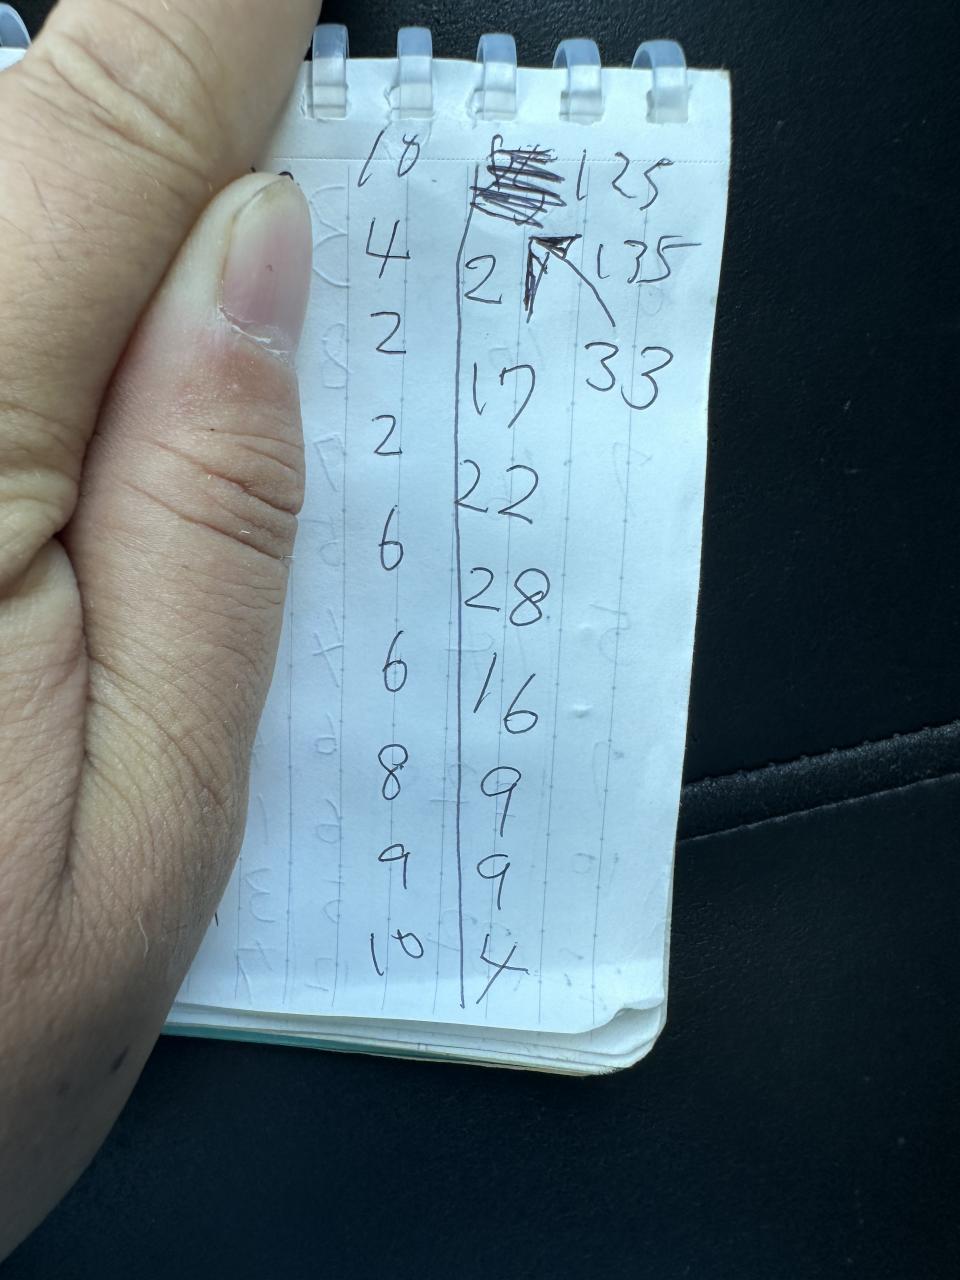 10 125
4 2 135
2 33
17
2 22
6 28
6 16
8 9
9 9
10 4